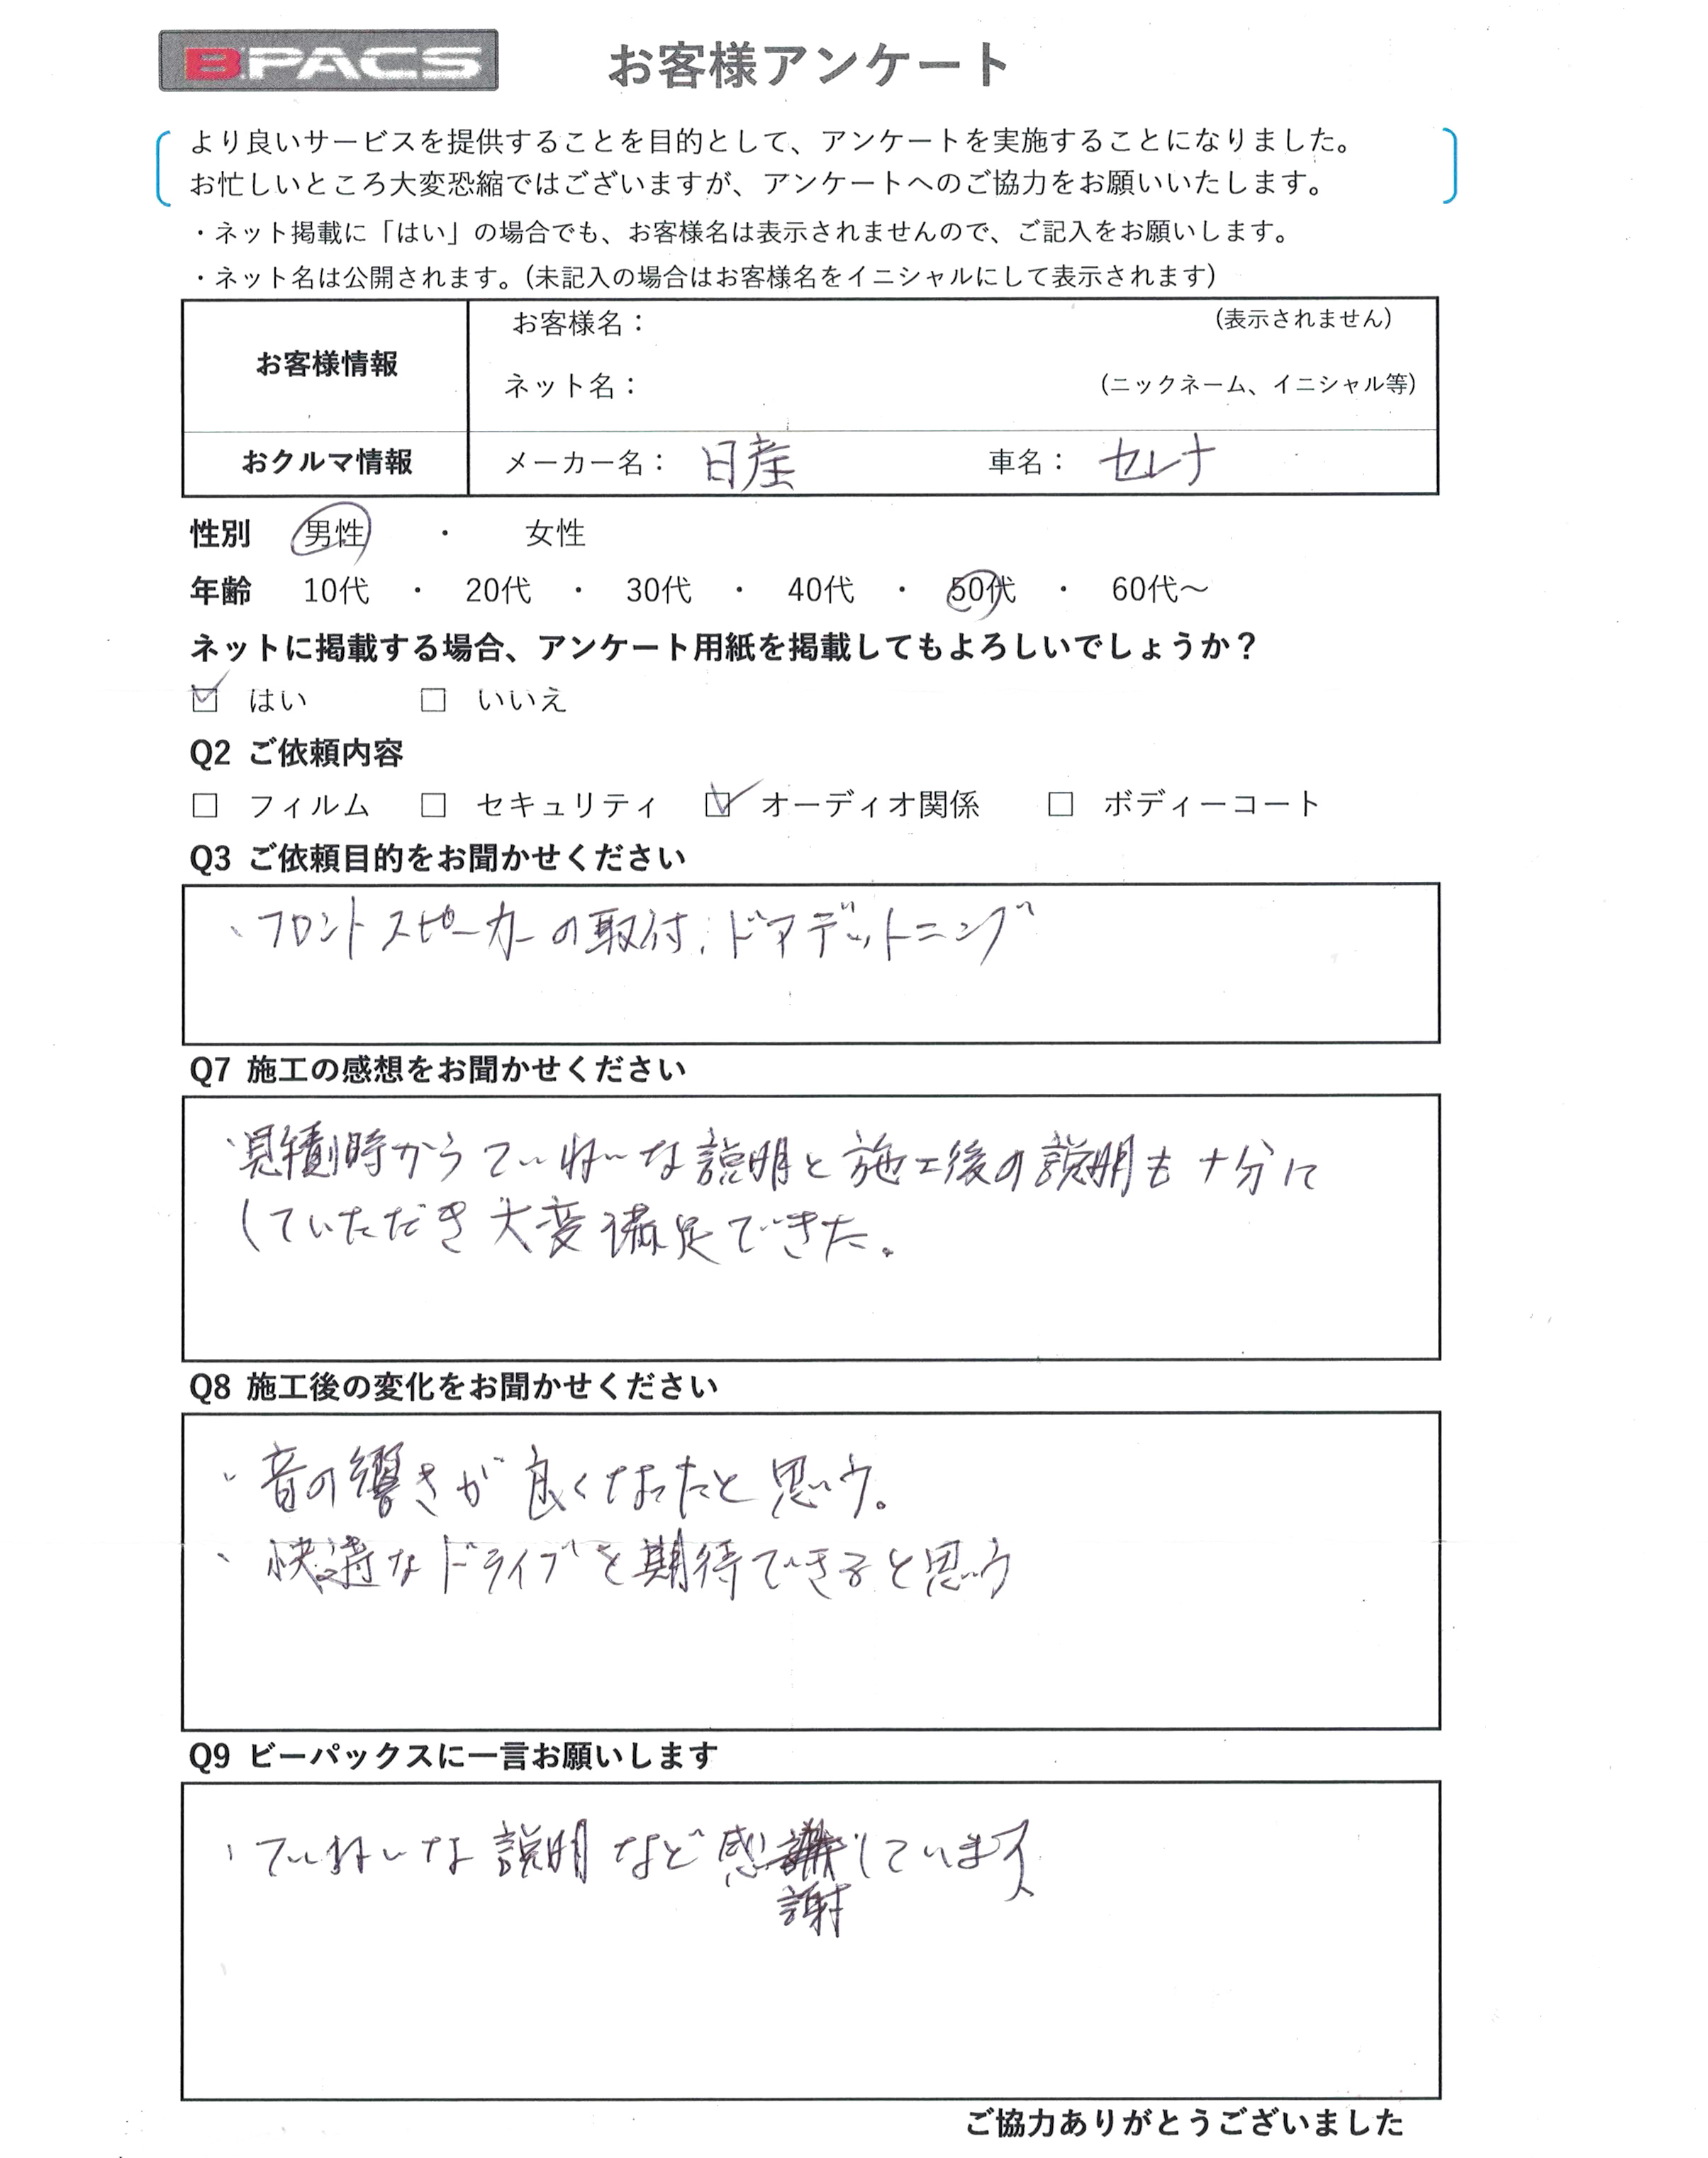 BPACS お客様アンケート
より良いサービスを提供することを目的として、アンケートを実施することになりました。
お忙しいところ大変恐縮ではございますが、アンケートへのご協力をお願いいたします。
・ネット掲載に「はい」の場合でも、お客様名は表示されませんので、ご記入をお願いします。
・ネット名は公開されます。(未記入の場合はお客様名をイニシャルにして表示されます)
お客様情報
お客様名： (表示されません)
ネット名： (ニックネーム、イニシャル等)
おクルマ情報 メーカー名： 日産 車名： セレナ
性別 男性 ・ 女性
年齢 10代 ・ 20代 ・ 30代 ・ 40代 ・ 50代 ・ 60代～
ネットに掲載する場合、アンケート用紙を掲載してもよろしいでしょうか？
☑ はい □ いいえ
Q2 ご依頼内容
□ フィルム □ セキュリティ ☑ オーディオ関係 □ ボディーコート
Q3 ご依頼目的をお聞かせください
、フロントスピーカーの取付、ドアデットニング
Q7 施工の感想をお聞かせください
・見積時からていねいな説明と施工後の説明も十分に
していただき大変満足できた。
Q8 施工後の変化をお聞かせください
・音の響きが良くなったと思う。
・快適なドライブを期待できると思う
Q9 ビーパックスに一言お願いします
・ていねいな説明など感謝しています
ご協力ありがとうございました